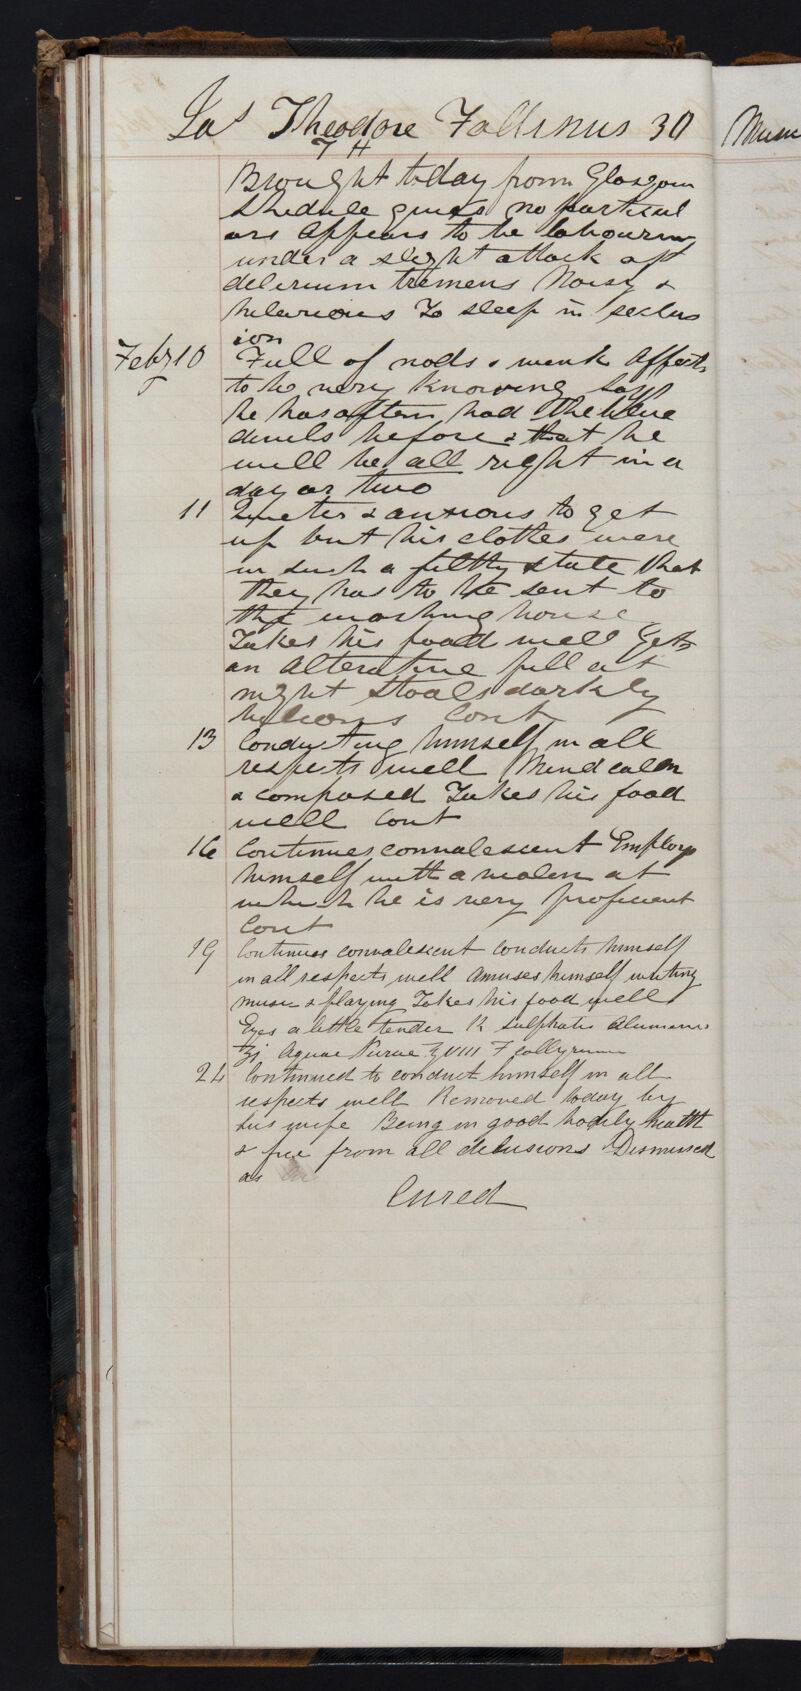 Jas Theodore 30
Musi
Brought today from Glasgow
Shedule gives no particul
ars Appears to be labouring
under a slight attack of
delirium tremens Noisy &
hilarious To sleep in seclus
ion
Feby 10 Full of nods & wink Affects
to be very knowing Says
he has often had the blue
devils before & that he
will be all right in a
day or two
11 Quieter & anxious to get
up but his clothes were
in such a filthy state that
they has to be sent to
the washing house
Takes his food well Gets
an Alterative pill at
night Stools darkly
bilious Cont
13 Conducting himself in all
respects well Mind calm
& composed Takes his food
well Cont
16 Continues convalescent Employs
himself with a violin at
which he is very proficient
Cont
19 Continues convalescent Conducts himself
in all respects well Amuses himself writing
music & playing Takes his food well
Eyes a little tender R Sulphatis Aluminis
ʒj Aquae Purae ℥VIII F Collyrium
24 Continued to conduct himself in all
respects well Removed today by
his wife Being in good bodily health
& free from all delusions Dismissed
as
Cured